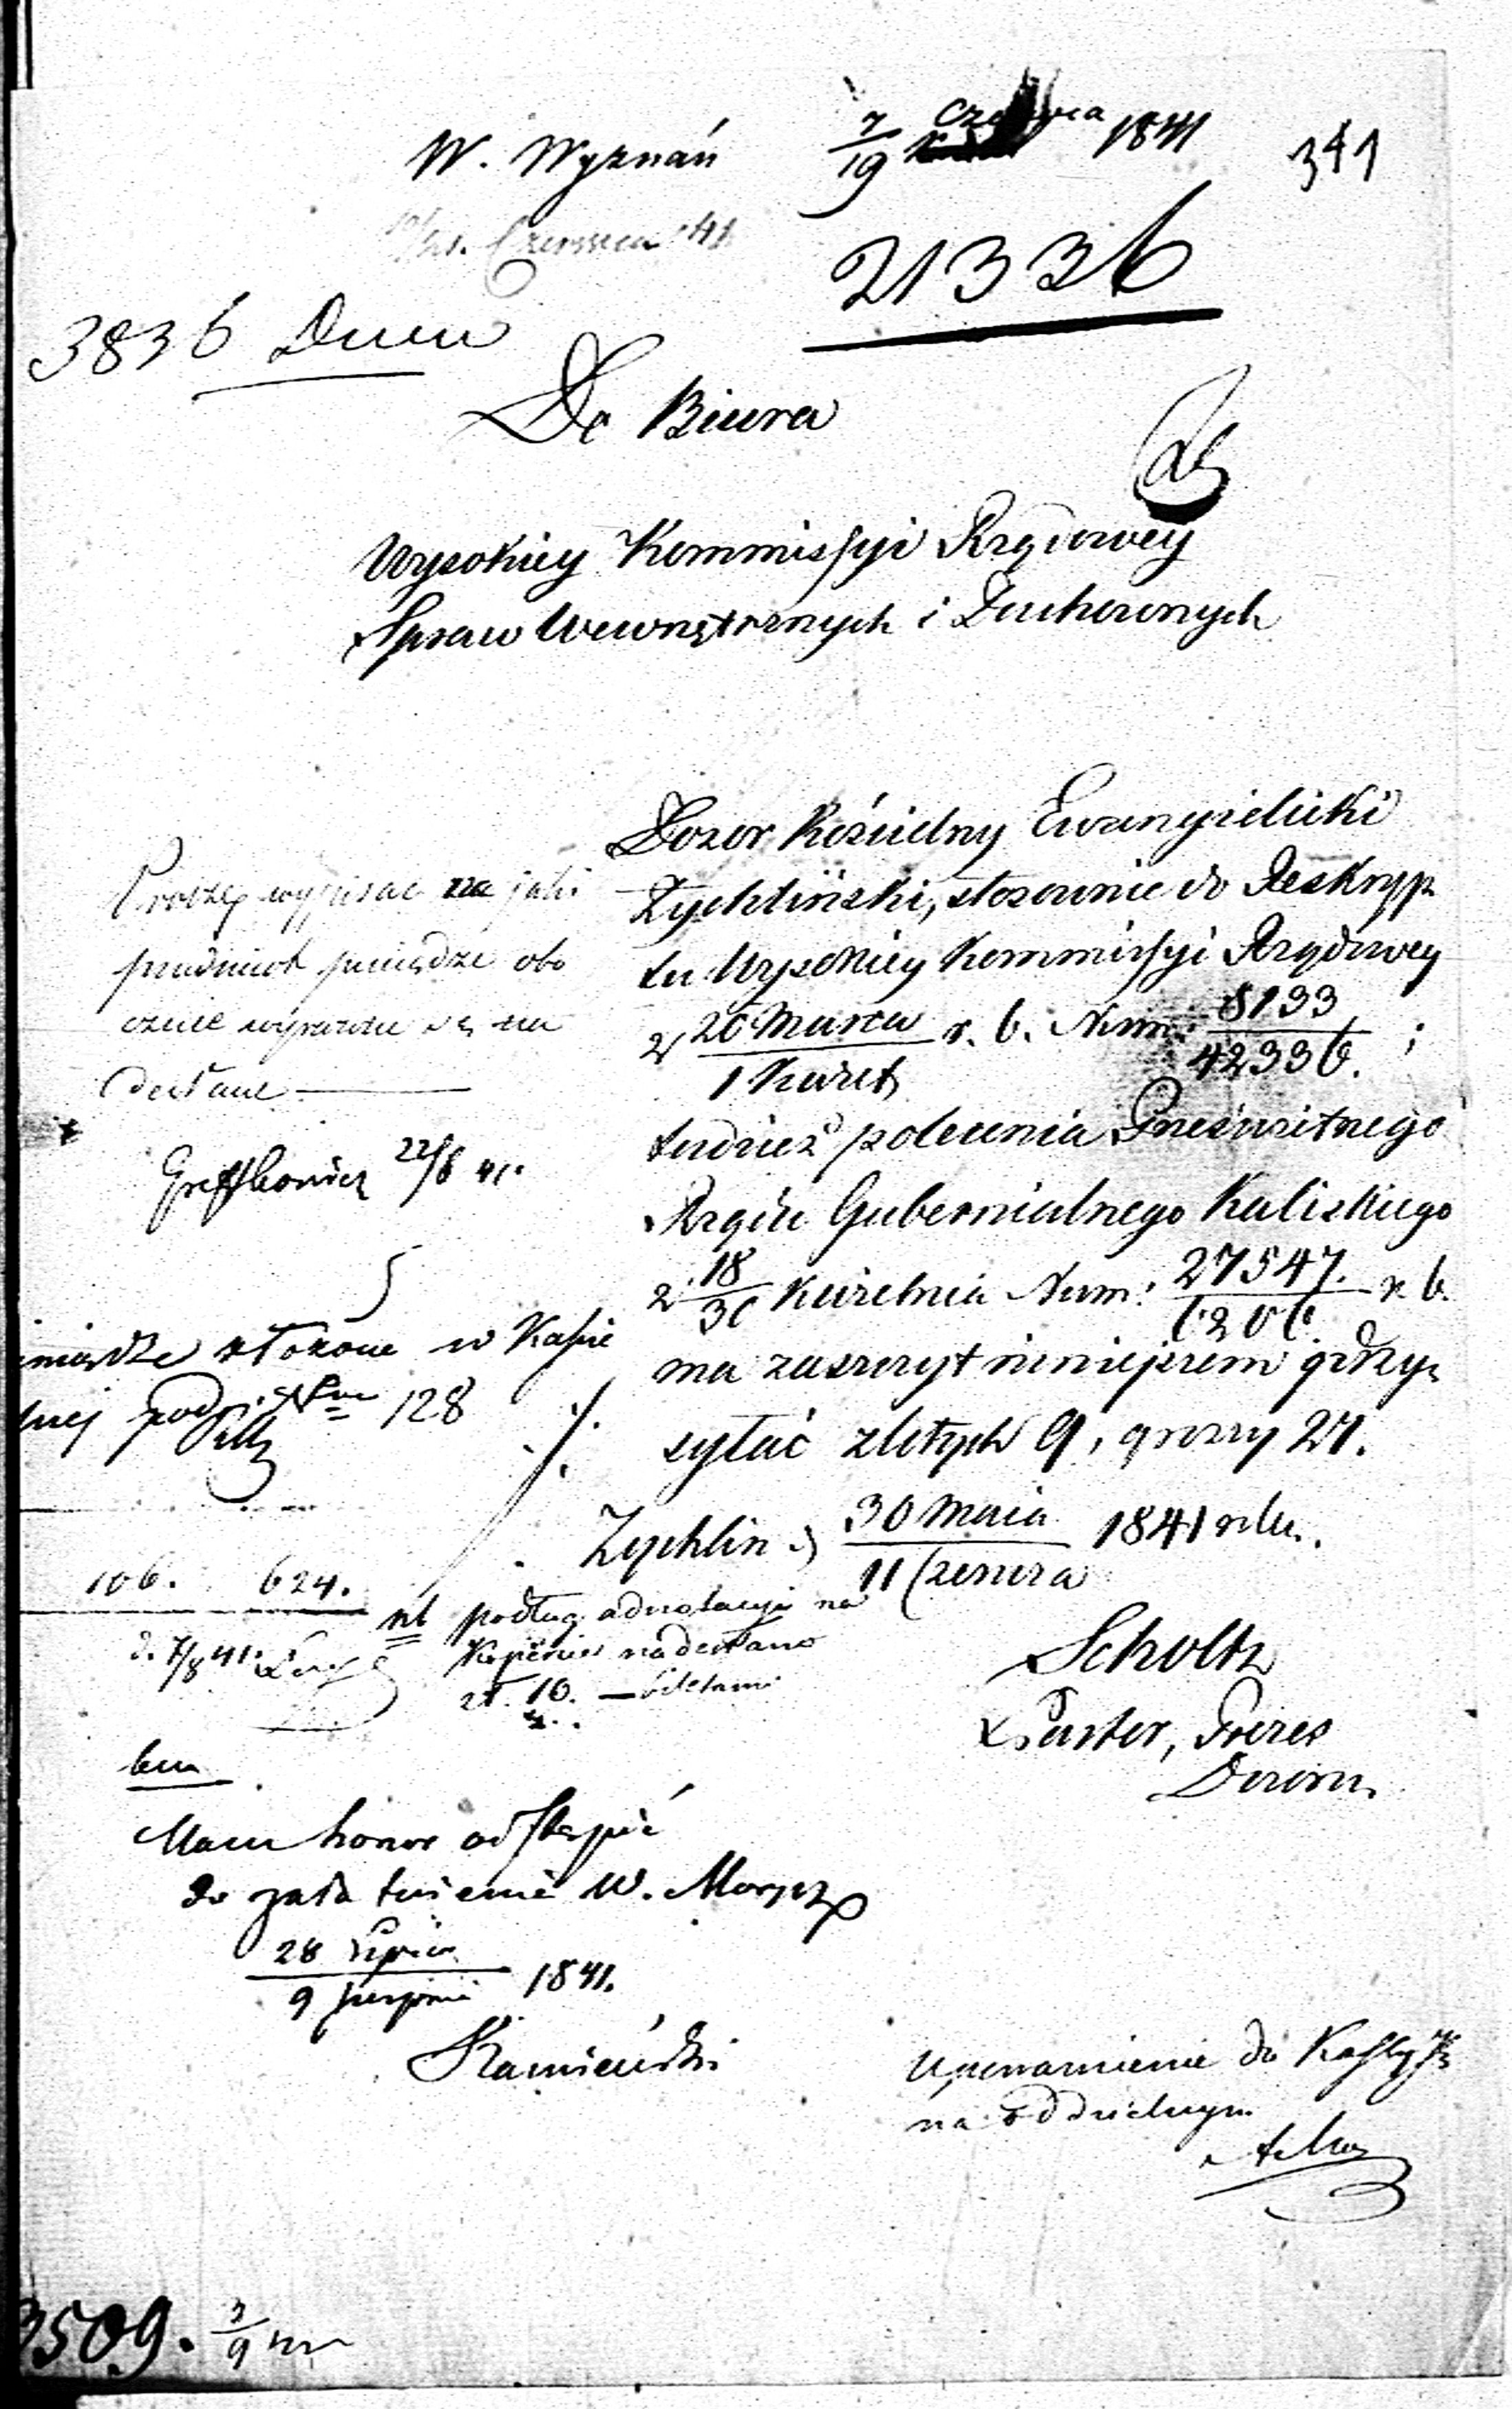 W. Wyznań 7/19 Czerwca 1841 341
Czerwca 41
21336
3836 Duch
Do Biura
Wysokiey Kommissyi Rządowey
Spraw Wewnętrznych i Duchownych
Dozor Kościelny Ewangielicki
Zychliński, stosownie do Reskryp
tu Wysokiey Kommissyi Rządowey
z 20 Marca / 1 Kwiet r. b. Num: 8133 / 42336. ;
tudzież polecenia Prześwietnego
Rządu Gubernialnego Kaliskiego
z 18/30 Kwietnia Num: 27547. / 6206 r. b.
ma zaszczyt niniejszem przy
syłać złotych 9, groszy 27.
Zychlin d 30 Maia / 11 Czerwca 1841 roku.
Scholtz
Pastor, Prezes
Dozoru
Proszę wypisać na jaki
przedmiot pieniądze obo
cznie wyrażone są na
desłane
22/6 41.
pieniądze złożone w Kassie
pod 128
106. 624.
d. 7/8 41.
nb podług adnotacyi na
Kopercie nadesłano
zł. 10. — biletami
Mam honor odstąpić
do załatwienia W. Morycz
28 Lipca / 9 Sierpnia 1841.
Kamieński
Upoważnienie do Kassy
na oddzielnym
3509. 3/9